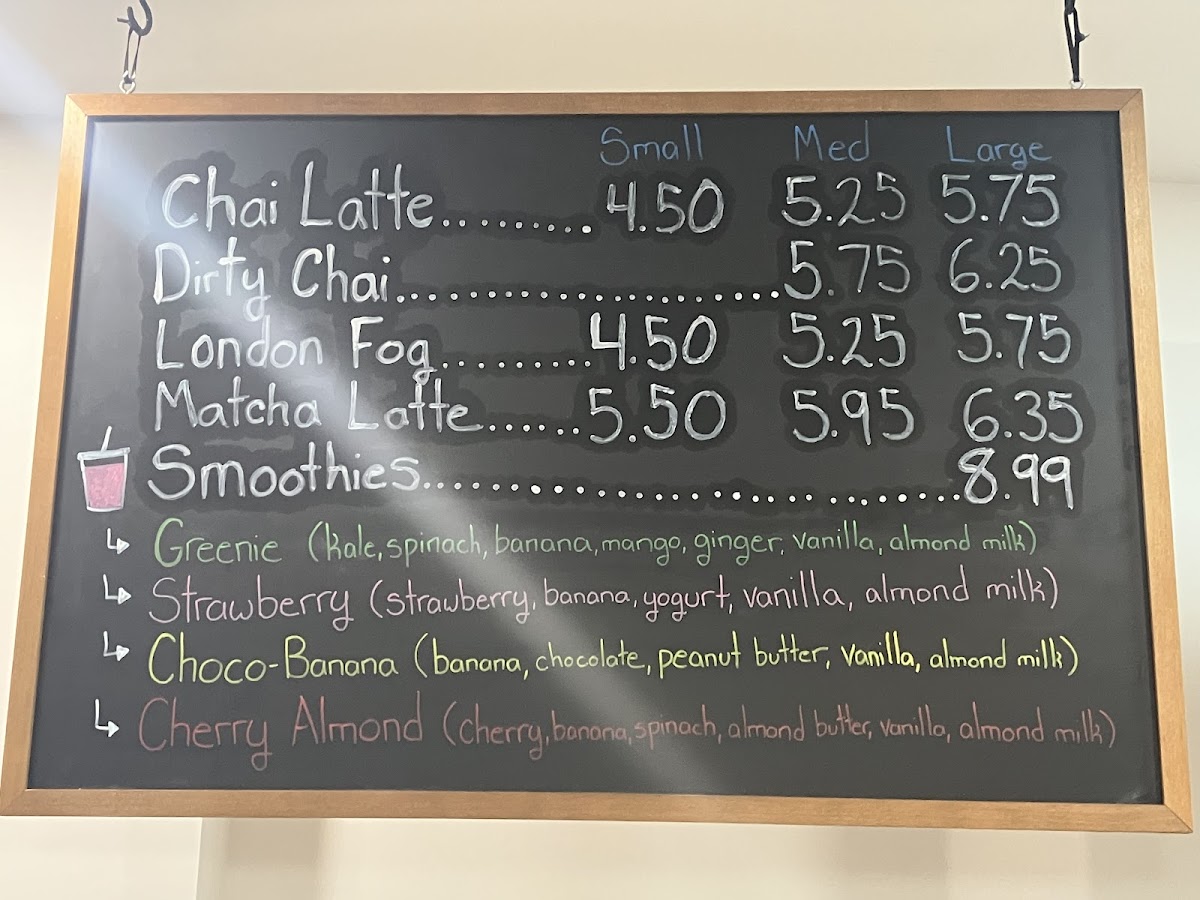 Small Med Large
Chai Latte......... 4.50 5.25 5.75
Dirty Chai..................... 5.75 6.25
London Fog......... 4.50 5.25 5.75
Matcha Latte...... 5.50 5.95 6.35
Smoothies.............................. 8.99
↳ Greenie (kale, spinach, banana, mango, ginger, vanilla, almond milk)
↳ Strawberry (strawberry, banana, yogurt, vanilla, almond milk)
↳ Choco-Banana (banana, chocolate, peanut butter, vanilla, almond milk)
↳ Cherry Almond (cherry, banana, spinach, almond butter, vanilla, almond milk)